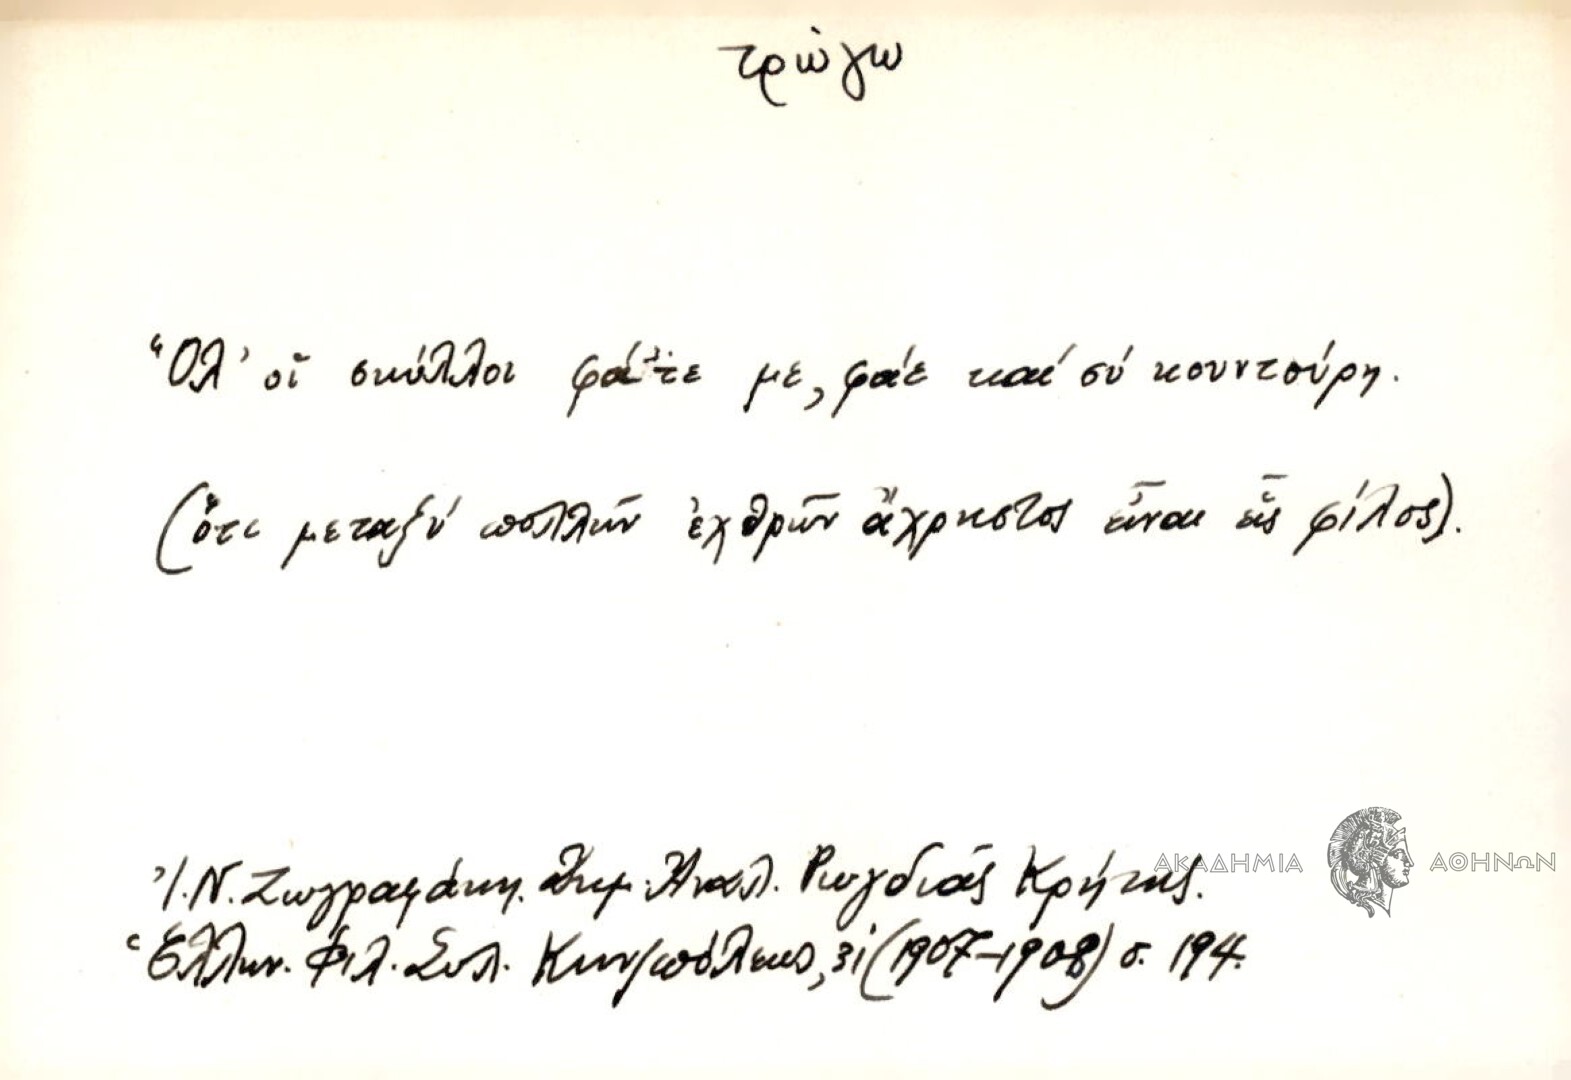 τρώγω
Ὅλ' οἱ σκύλλοι φάτε με, φάε καί σύ κουντούρη.
(ὅτι μεταξύ πολλῶν ἐχθρῶν ἄχρηστος εἶναι εἷς φίλος).
Ἰ. Ν. Ζωγραφάκη. Δημ. Ἀναλ. Ρωγδιᾶς Κρήτης.
Ἑλλην. Φιλ. Συλ. Κων/πόλεως, 31 (1907-1908) σ. 194.
ΑΚΑΔΗΜΙΑ ΑΘΗΝΩΝ